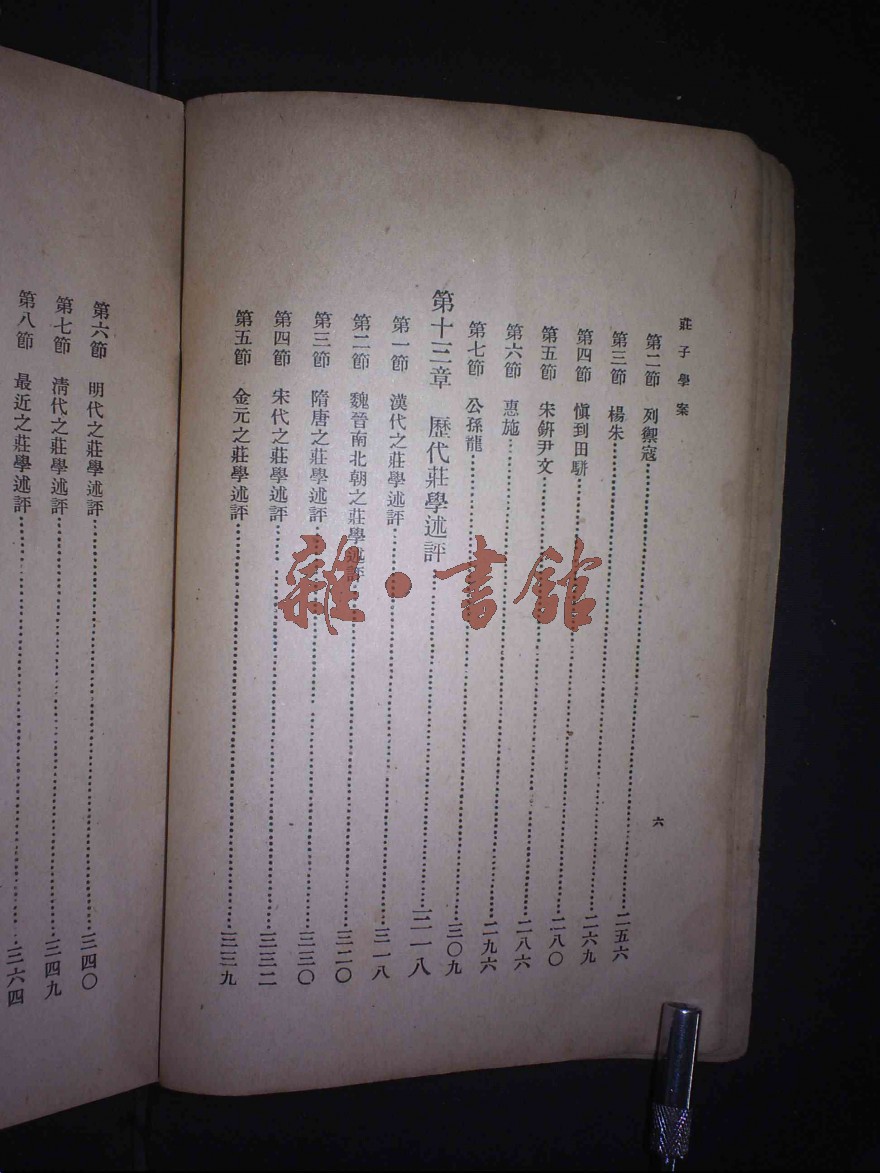 莊子學案
六
第二節 列禦寇 二五六
第三節 楊朱 二六九
第四節 愼到田駢 二八〇
第五節 宋鈃尹文 二八六
第六節 惠施 二九六
第七節 公孫龍 三〇九
第十三章 歷代莊學述評 三一八
第一節 漢代之莊學述評 三一八
第二節 魏晉南北朝之莊學述評 三二〇
第三節 隋唐之莊學述評 三三〇
第四節 宋代之莊學述評 三三二
第五節 金元之莊學述評 三三九
第六節 明代之莊學述評 三四〇
第七節 淸代之莊學述評 三四九
第八節 最近之莊學述評 三六四
雜·書館